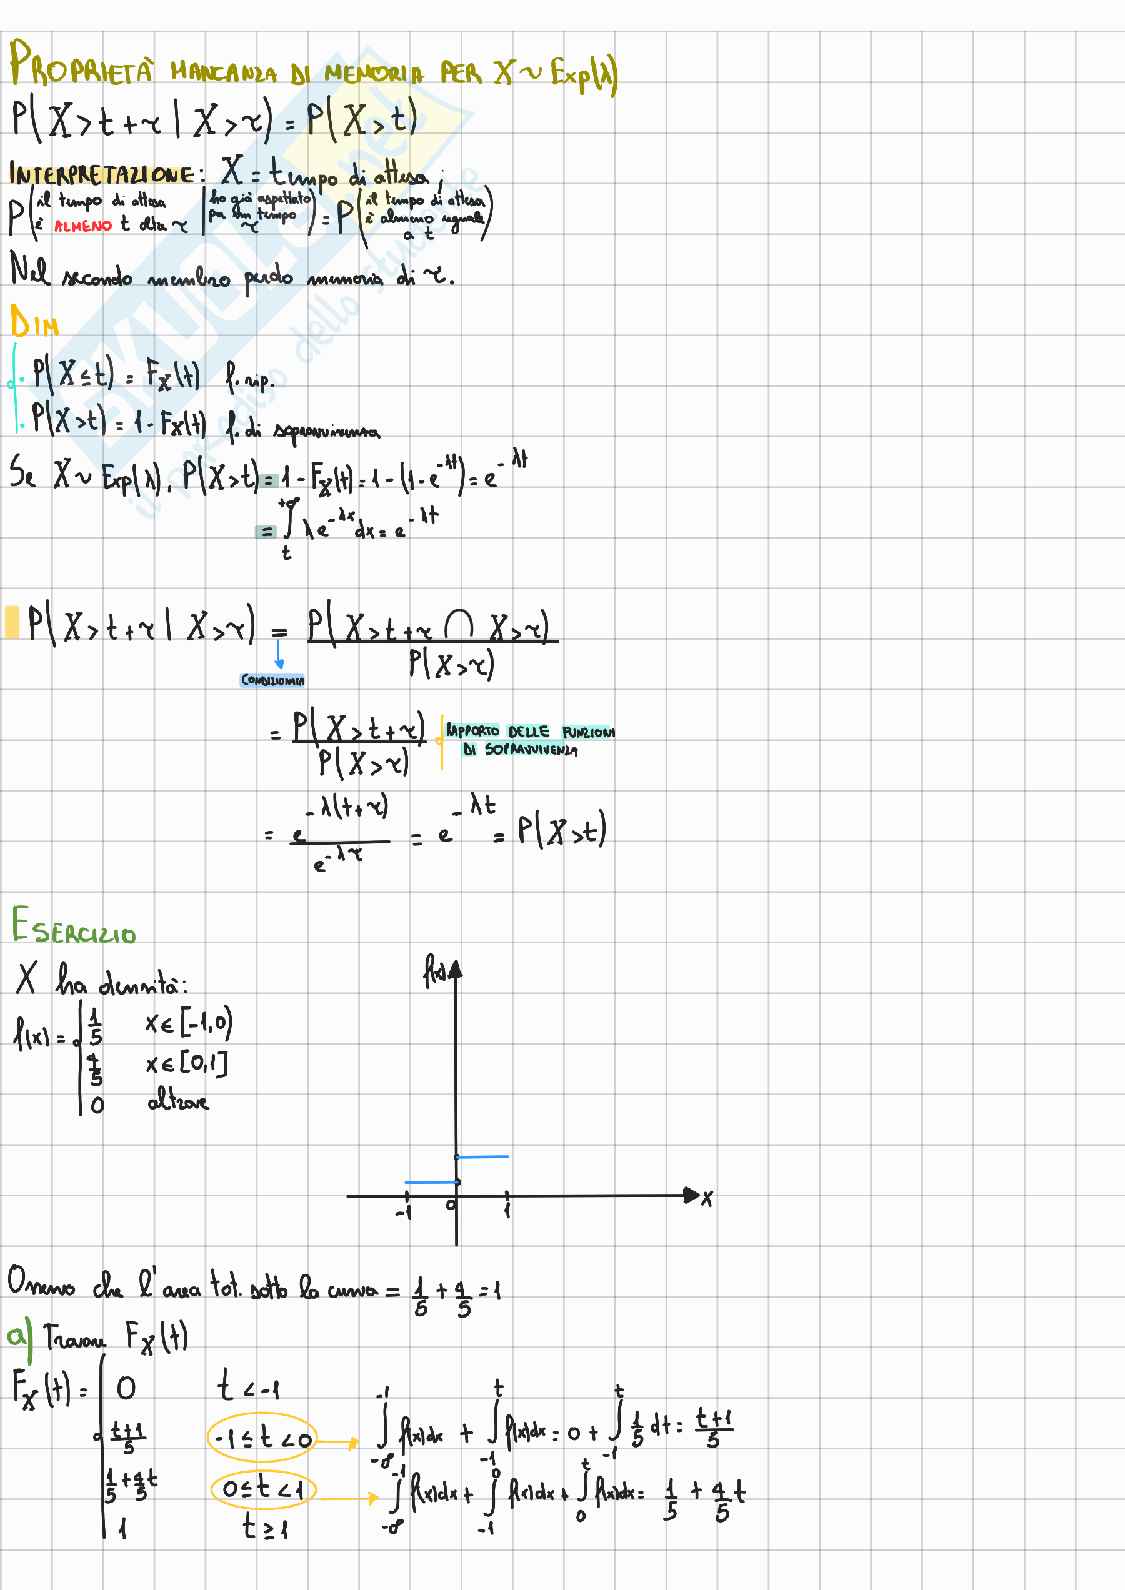 PROPRIETÀ MANCANZA DI MEMORIA PER X ~ Exp(λ)
P(X>t+τ | X>τ) = P(X>t)
INTERPRETAZIONE: X = tempo di attesa;
P(il tempo di attesa è ALMENO t oltre τ | ho già aspettato per un tempo τ) = P(il tempo di attesa è almeno uguale a t)
Nel secondo membro perdo memoria di τ.
DIM
· P(X≤t) = F_X(t) f. rip.
· P(X>t) = 1 - F_X(t) f. di sopravvivenza
Se X ~ Exp(λ), P(X>t) = 1 - F_X(t) = 1 - (1 - e^{-λt}) = e^{-λt}
= ∫_t^{+∞} λe^{-λx} dx = e^{-λt}
P(X>t+τ | X>τ) = P(X>t+τ ∩ X>τ) / P(X>τ)
CONDIZIONATA
= P(X>t+τ) / P(X>τ) RAPPORTO DELLE FUNZIONI DI SOPRAVVIVENZA
= e^{-λ(t+τ)} / e^{-λτ} = e^{-λt} = P(X>t)
ESERCIZIO
X ha densità:
f(x) = { 1/5 x∈[-1,0)
4/5 x∈[0,1]
0 altrove
f(x)
-1 0 1 x
Osservo che l'area tot. sotto la curva = 1/5 + 4/5 = 1
a) Trovare F_X(t)
F_X(t) = { 0 t < -1
(t+1)/5 -1 ≤ t < 0 → ∫_{-∞}^{-1} f(x)dx + ∫_{-1}^{t} f(x)dx = 0 + ∫_{-1}^{t} 1/5 dt = (t+1)/5
1/5 + 4/5 t 0 ≤ t < 1 → ∫_{-∞}^{-1} f(x)dx + ∫_{-1}^{0} f(x)dx + ∫_0^t f(x)dx = 1/5 + 4/5 t
1 t ≥ 1